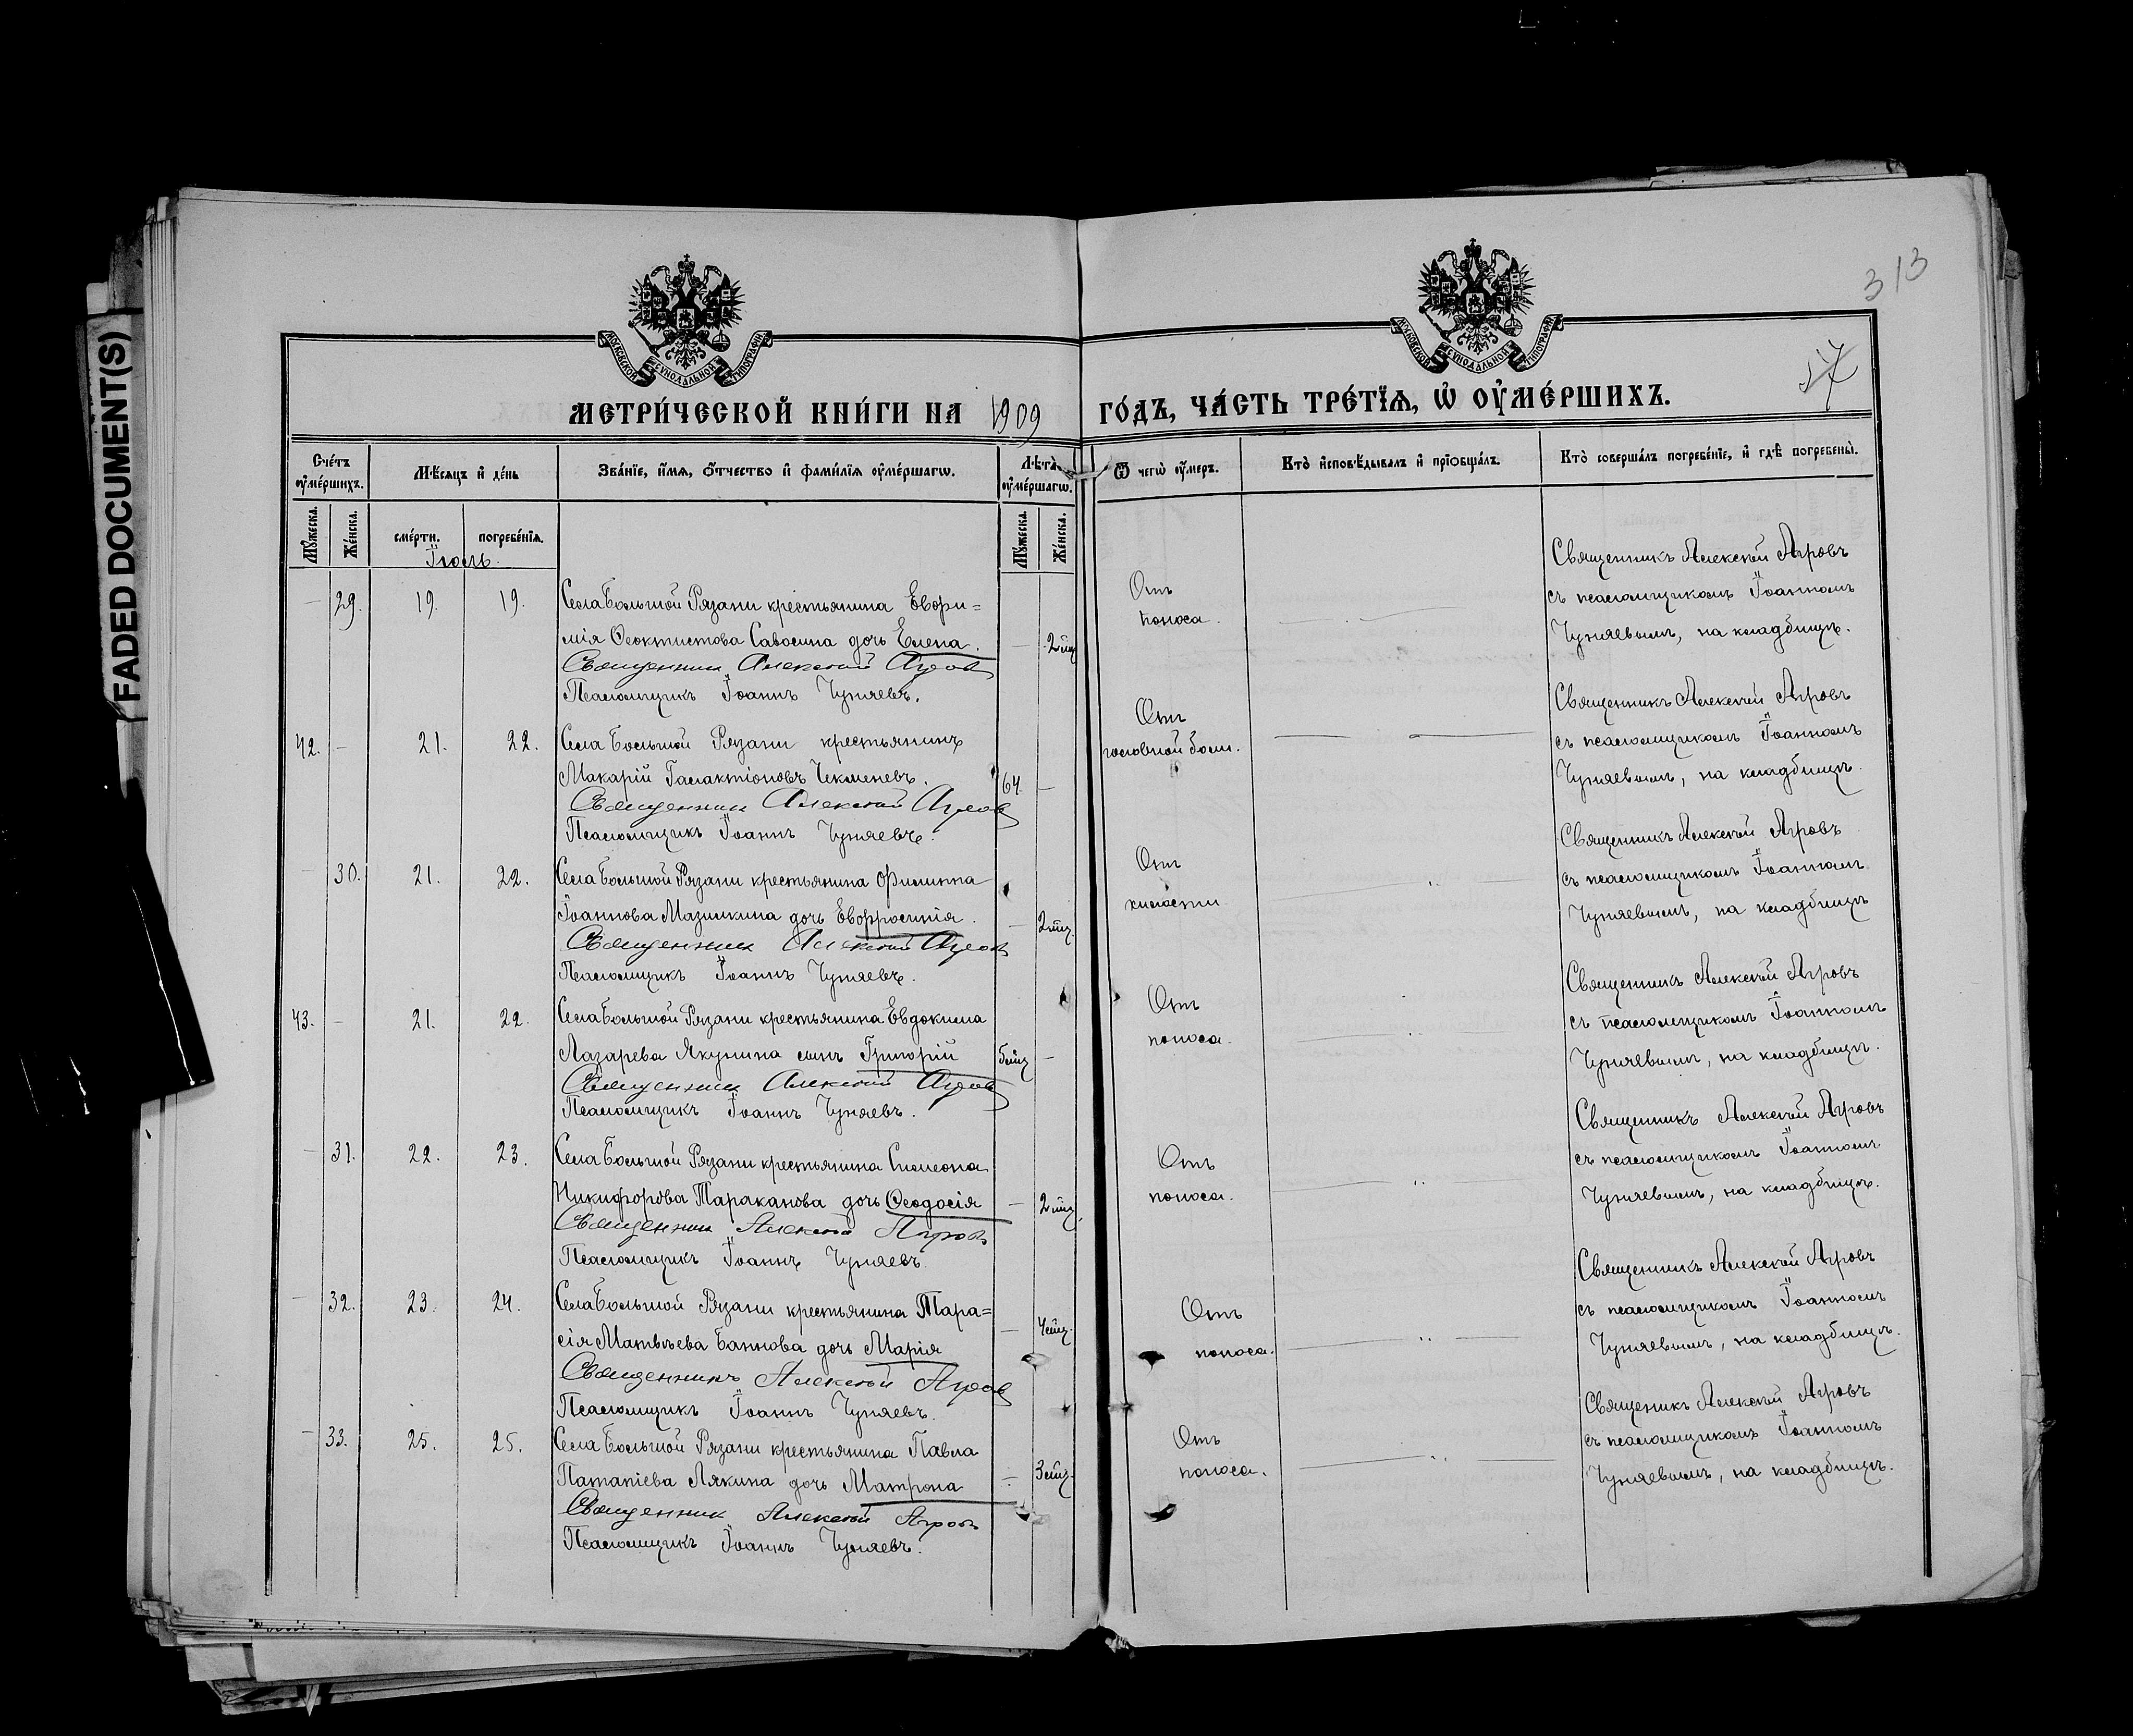 FADED DOCUMENT(S)
313
57
МОСКОВСКОЙ СѴНОДАЛЬНОЙ ТИПОГРАФІИ
МОСКОВСКОЙ СѴНОДАЛЬНОЙ ТИПОГРАФІИ
МЕТРИ́ЧЕСКОЙ КНИ́ГИ НА 1909 ГО́ДЪ, ЧА́СТЬ ТРЕ́ТЇѦ, Ѡ҆ ОУ҆МЕ́РШИХЪ.
Сче́тъ оу҆ме́ршихъ.
Мѣ́сѧцъ и҆ де́нь
Зва́нїе, и҆́мѧ, ѻ҆́тчество и҆ фами́лїѧ оу҆ме́ршагѡ.
Лѣ́та оу҆ме́ршагѡ.
Ѿ чегѡ̀ оу҆́меръ.
Кто̀ и҆сповѣ́дывалъ и҆ прїѡбща́лъ.
Кто̀ соверша́лъ погребе́нїе, и҆ гдѣ̀ погребены̀.
Мꙋ́жеска.
Же́нска.
сме́рти.
погребе́нїѧ.
Мꙋ́жеска.
Же́нска.
Іюль.
— 29. 19. 19.
Села Большой Рязани крестьянина Евѳи=
мія Ѳеоктистова Савосина дочь Елена.
— 2 мц
Священникъ Алексѣй Агровъ
Псаломщикъ Іоаннъ Чуняевъ.
Отъ
поноса.
Священникъ Алексѣй Агровъ
съ псаломщикомъ Іоанномъ
Чуняевымъ, на кладбищѣ.
42. — 21. 22.
Села Большой Рязани крестьянинъ
Макарій Галактіоновъ Чекменевъ.
64. —
Священникъ Алексѣй Агровъ
Псаломщикъ Іоаннъ Чуняевъ.
Отъ
головной боли.
Священникъ Алексѣй Агровъ
съ псаломщикомъ Іоанномъ
Чуняевымъ, на кладбищѣ.
— 30. 21. 22.
Села Большой Рязани крестьянина Филиппа
Іоаннова Мазилкина дочь Евфросинія.
— 2 мц.
Священникъ Алексѣй Агровъ
Псаломщикъ Іоаннъ Чуняевъ.
Отъ
хилости
Священникъ Алексѣй Агровъ
съ псаломщикомъ Іоанномъ
Чуняевымъ, на кладбищѣ
43. — 21. 22.
Села Большой Рязани крестьянина Евдокима
Лазарева Якунина сынъ Григорій
5 мц —
Священникъ Алексѣй Агровъ
Псаломщикъ Іоаннъ Чуняевъ.
Отъ
поноса.
Священникъ Алексѣй Агровъ
съ псаломщикомъ Іоанномъ
Чуняевымъ, на кладбищѣ.
— 31. 22. 23.
Села Большой Рязани крестьянина Симеона
Никифорова Тараканова дочь Ѳеодосія
— 2 мц.
Священникъ Алексѣй Агровъ
Псаломщикъ Іоаннъ Чуняевъ
Отъ
поноса.
Священникъ Алексѣй Агровъ
съ псаломщикомъ Іоанномъ
Чуняевымъ, на кладбищѣ.
— 32. 23. 24.
Села Большой Рязани крестьянина Тара=
сія Матвѣева Баннова дочь Марія
— 4 мц.
Священникъ Алексѣй Агровъ
Псаломщикъ Іоаннъ Чуняевъ.
Отъ
поноса.
Священникъ Алексѣй Агровъ
съ псаломщикомъ Іоанномъ
Чуняевымъ, на кладбищѣ.
— 33. 25. 25.
Села Большой Рязани крестьянина Павла
Патапіева Лякина дочь Матрона
— 3 мц.
Священникъ Алексѣй Агровъ
Псаломщикъ Іоаннъ Чуняевъ.
Отъ
поноса.
Священикъ Алексѣй Агровъ
съ псаломщикомъ Іоанномъ
Чуняевымъ, на кладбищѣ.